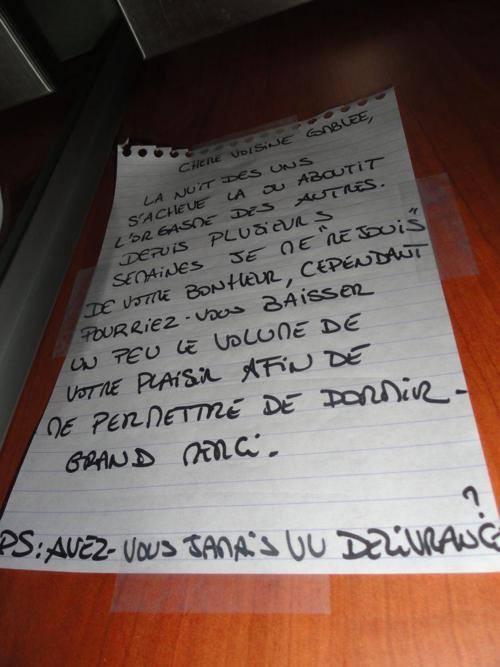 CHERE VOISINE COMBLEE,
LA NUIT DES UNS
S'ACHEVE LA OU ABOUTIT
L'ORGASME DES AUTRES.
DEPUIS PLUSIEURS
SEMAINES JE ME "REJOUIS"
DE VOTRE BONHEUR, CEPENDANT
POURRIEZ-VOUS BAISSER
UN PEU LE VOLUME DE
VOTRE PLAISIR AFIN DE
ME PERMETTRE DE DORMIR.
GRAND MERCI.
PS: AVEZ-VOUS JAMAIS VU DELIVRANCE?